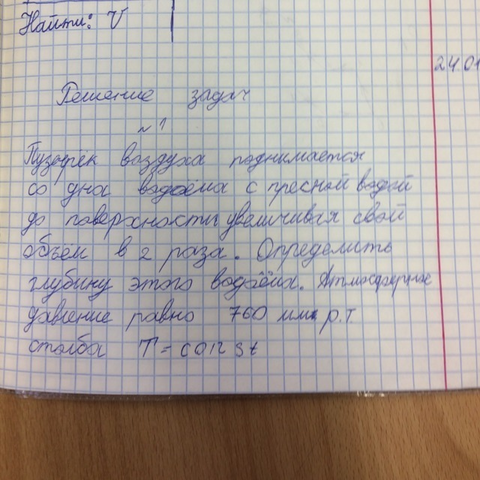 Найти: V
24.01
Решение задач
~ 1
Пузырёк воздуха поднимается
со дна водоёма с пресной водой
до поверхности увеличивая свой
объём в 2 раза. Определить
глубину этого водоёма. Атмосферное
давление равно 760 мм р.т
столба T = const